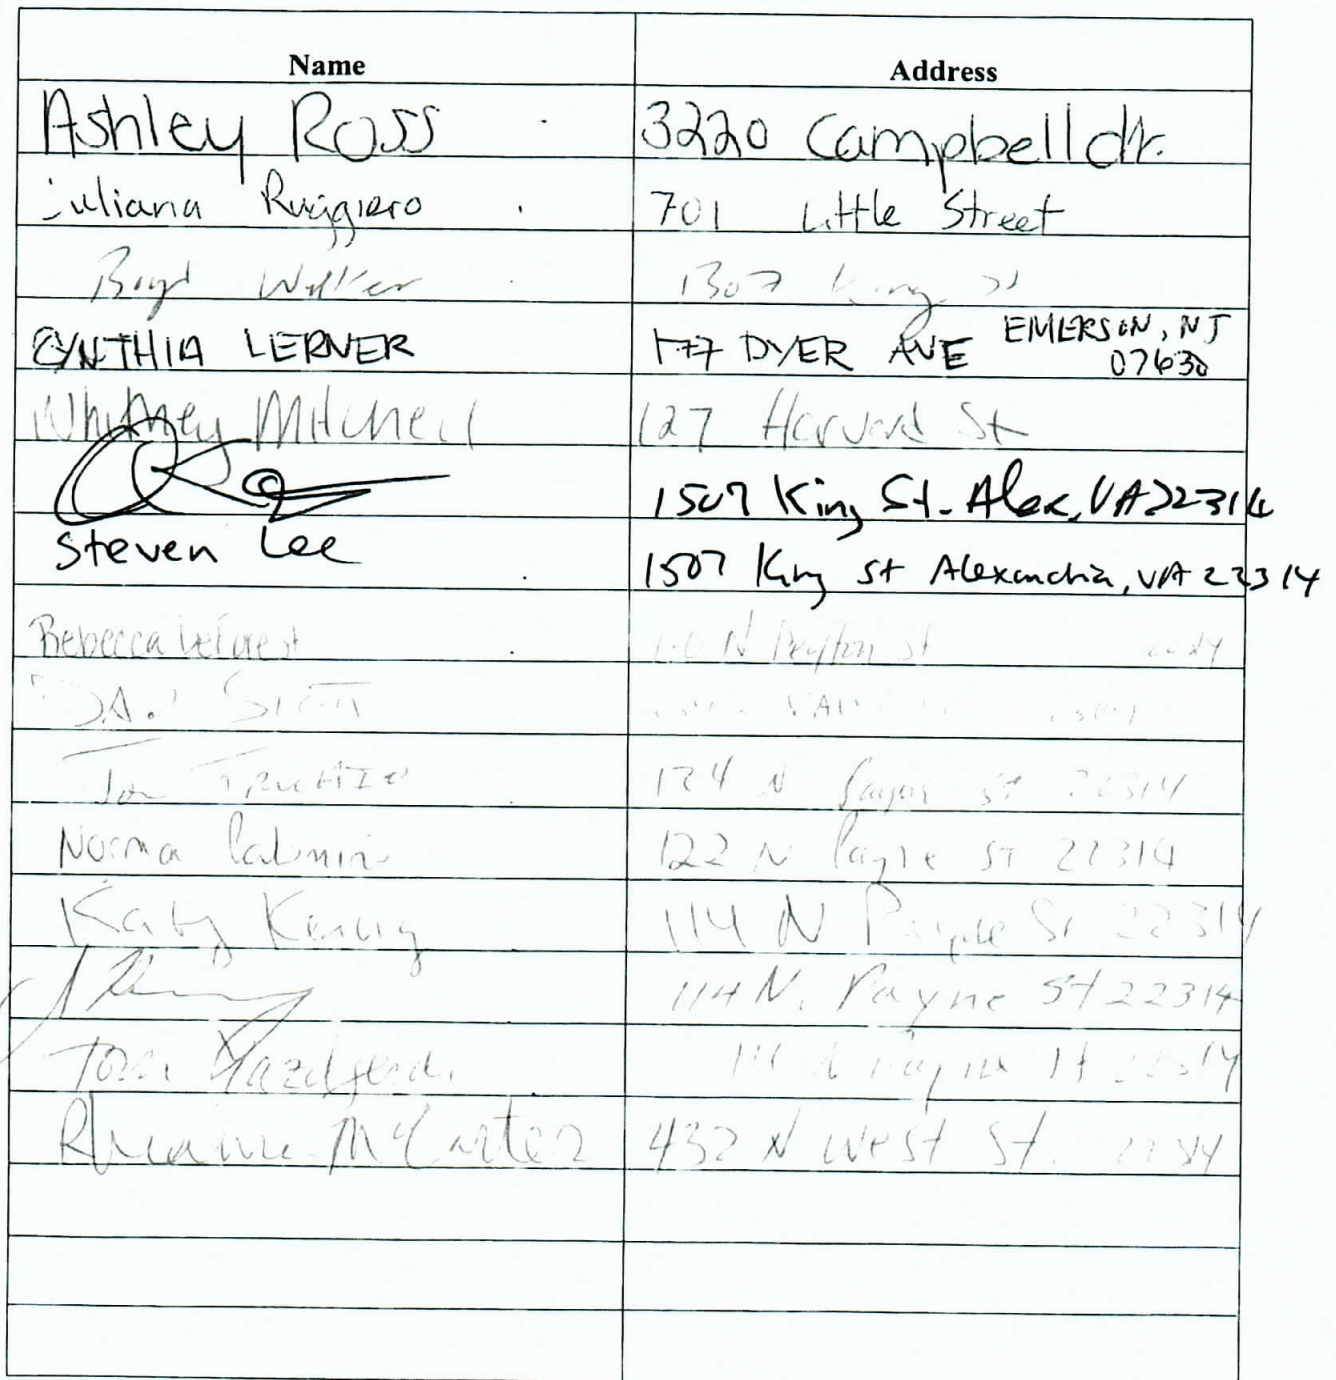 Name Address
Ashley Ross 3220 Campbell dr.
Juliana Ruggiero 701 Little Street
Boyd Walker 1307 King St
CYNTHIA LERNER 177 DYER AVE EMERSON, NJ 07630
Whitney Mitchell 127 Harvard St
1507 King St. Alex, VA 22314
Steven Lee 1507 King St Alexandria, VA 22314
Rebecca N Peyton St
124 N Payne St 22314
Norma 122 N Payne ST 22314
Katy 114 N Payne St 22314
114 N. Payne St 22314
N Payne St 22314
McCarter 432 N West St.